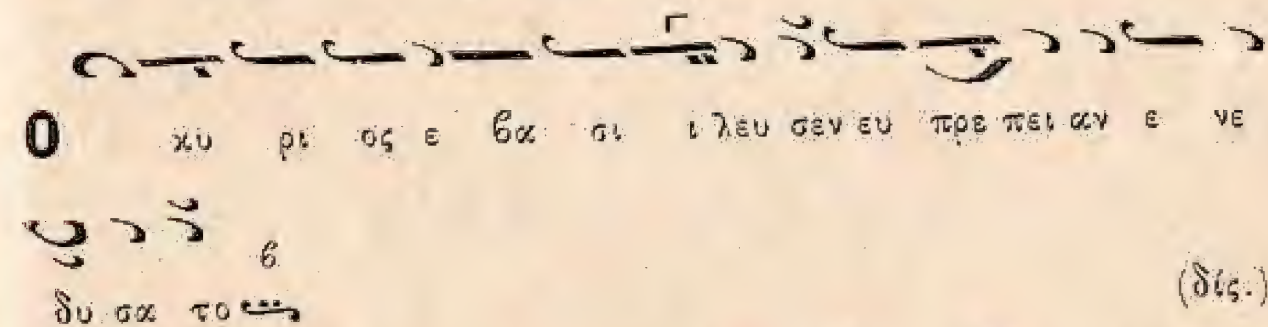 Ο κυ ρι ος ε βα σι ι λευ σεν ευ πρε πει αν ε νε
δυ σα το
(δίς.)